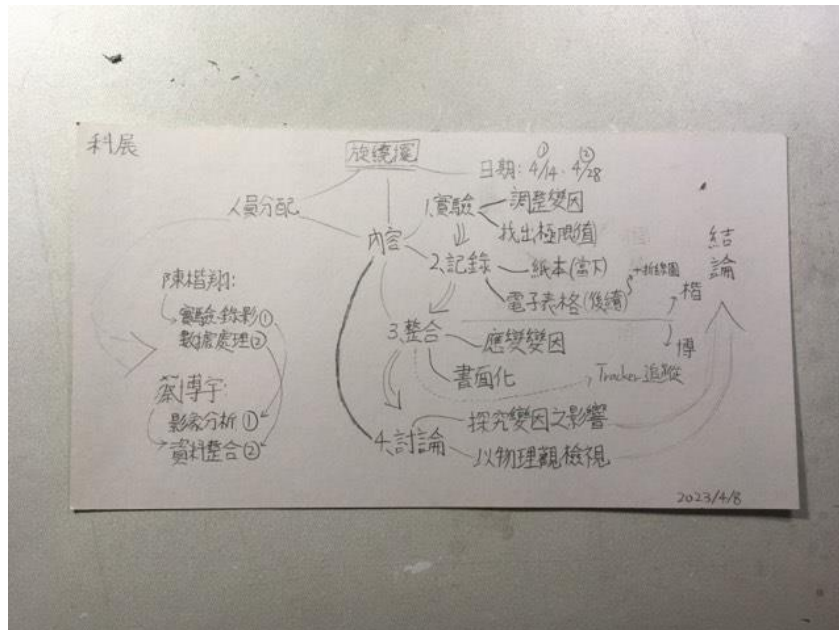 科展
旋繞擺
① ②
日期: 4/14. 4/28
人員分配
內容
1.實驗
調整變因
找出極限值
2.記錄
紙本(當下)
電子表格(後續)
+折線圖
3.整合
應變變因
畫面化
Tracker 追蹤
楷
博
4.討論
探究變因之影響
以物理觀檢視
結論
陳楷翔:
實驗錄影①
數據處理②
博宇:
影象分析①
資料整合②
2023/4/8